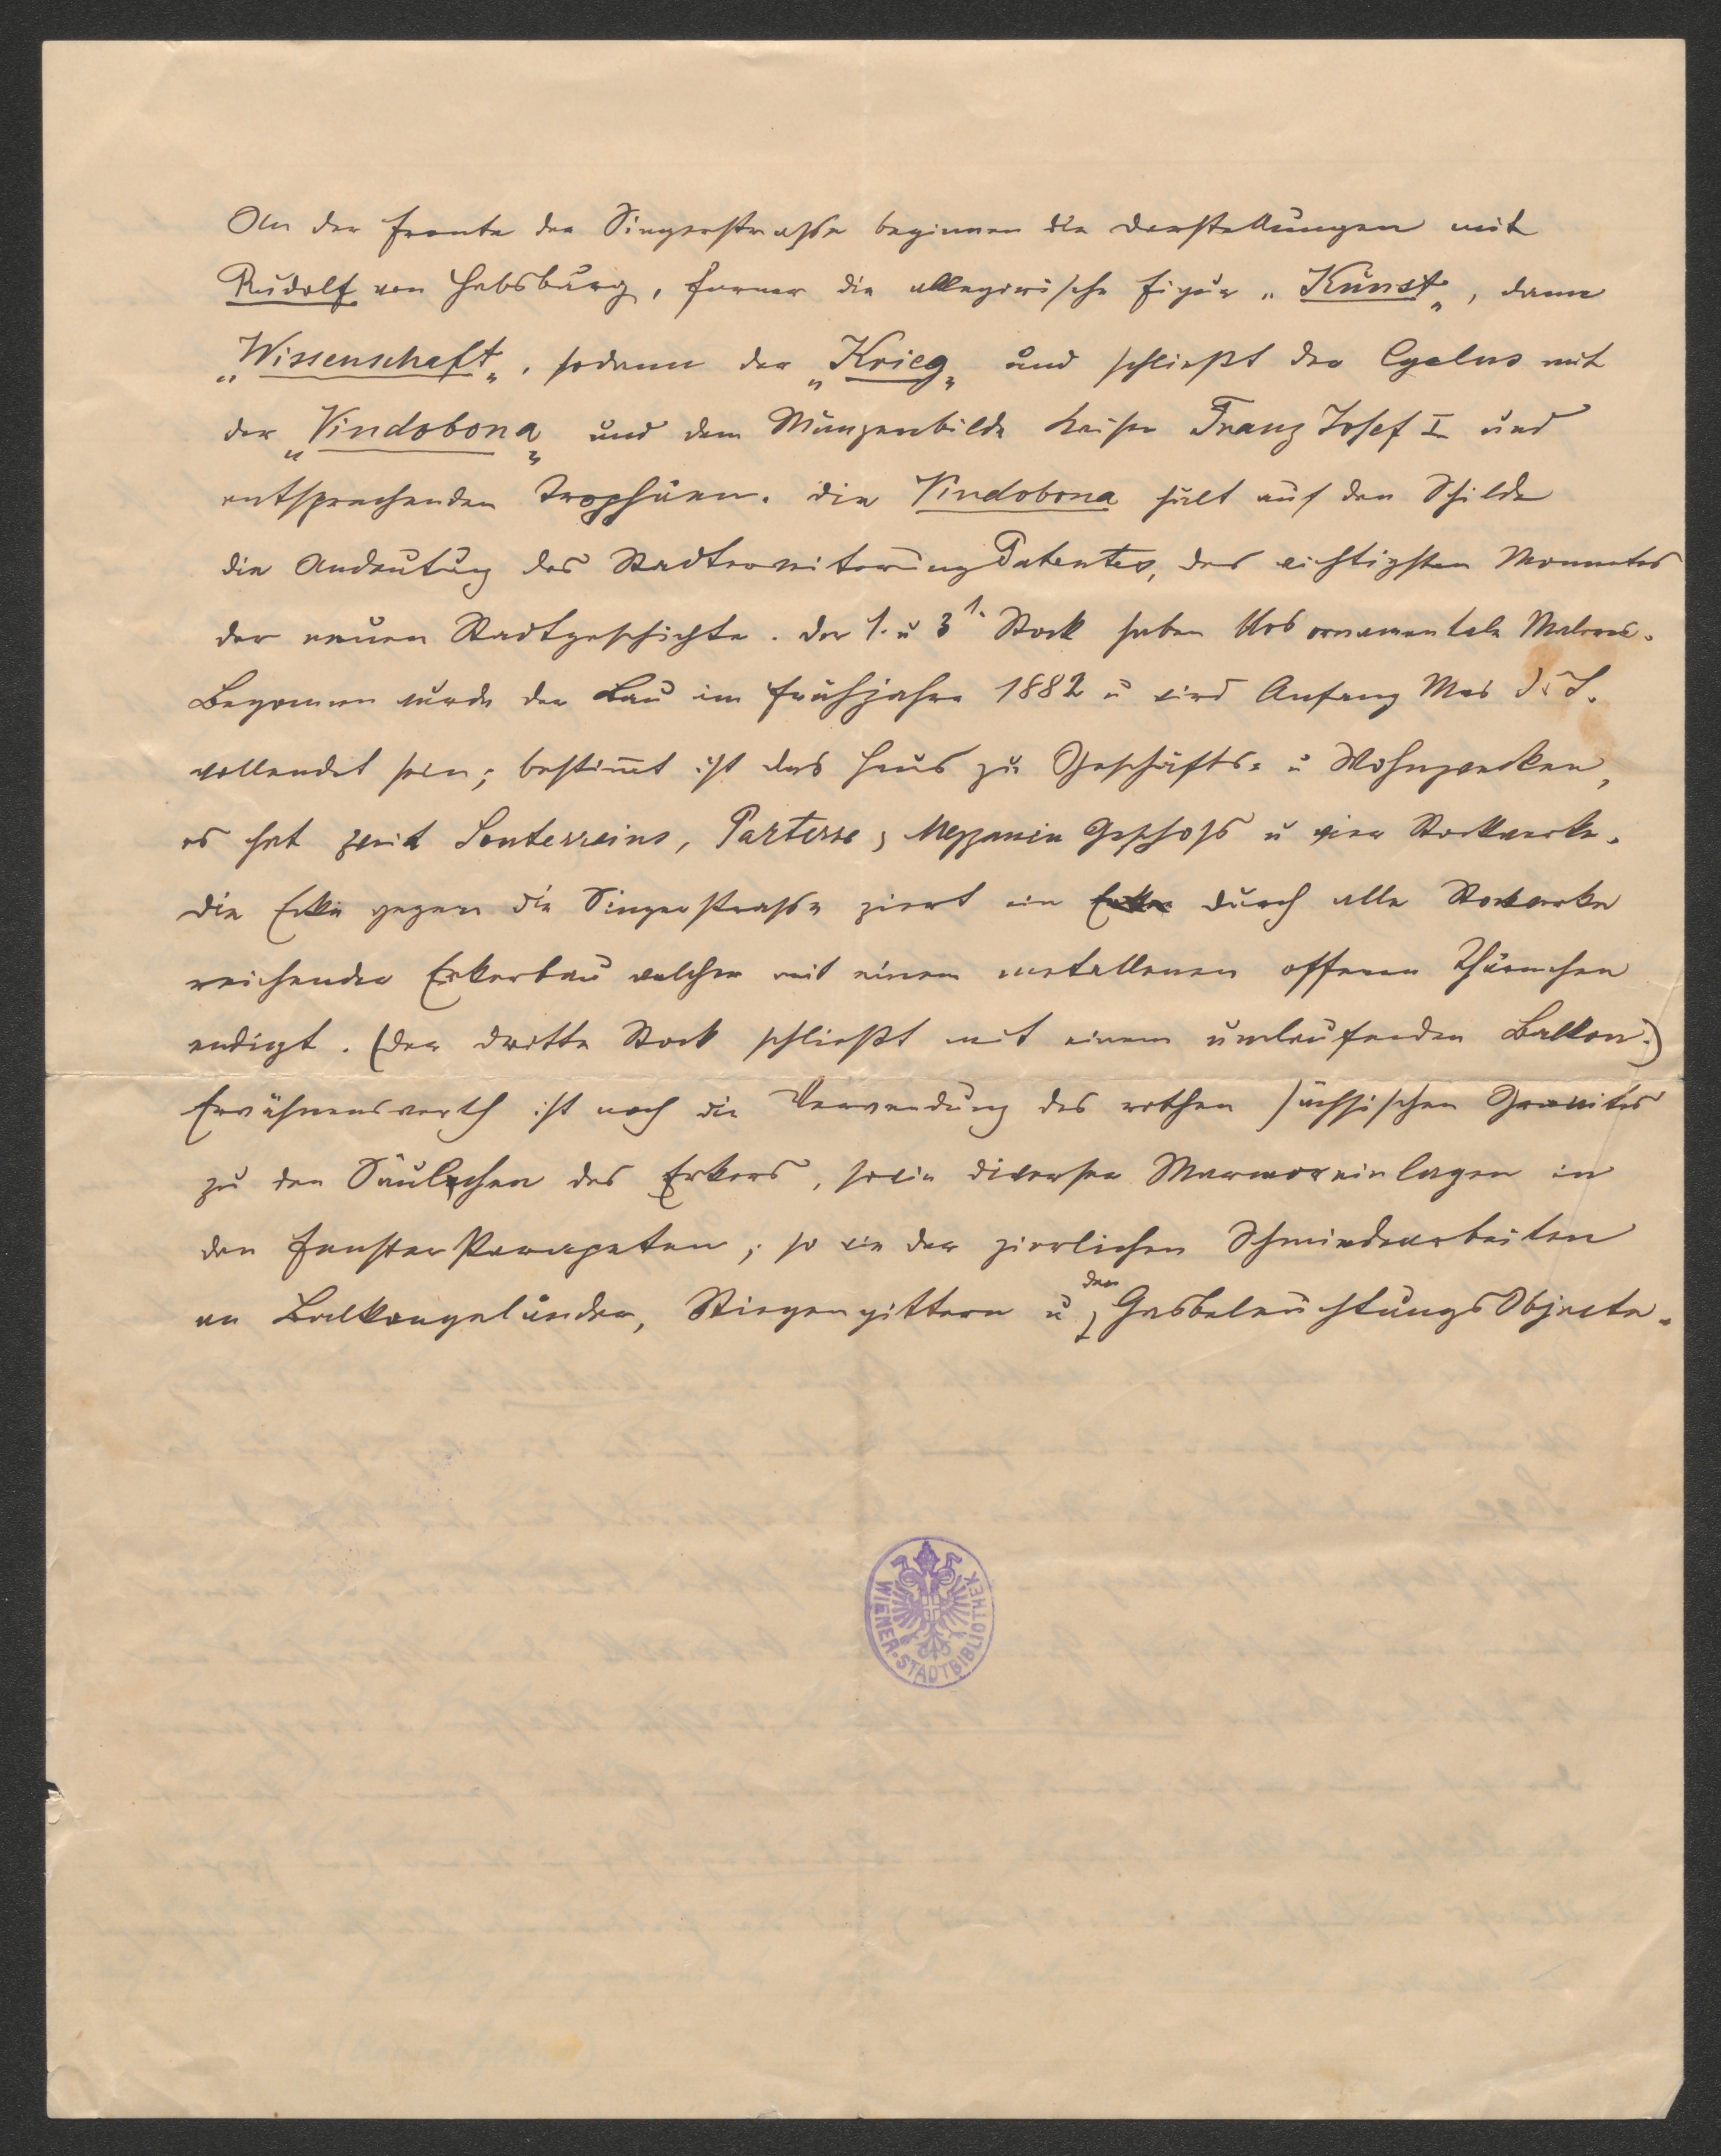 An der Fronte der Singerstrasse beginnen die Darstellungen mit
Rudolf von Habsburg, ferner die allegorische Figur „Kunst„, dann
„Wissenschaft„, sodann der „Krieg„ und schließt der Cyclus mit
der „Vindobona„ und dem Münzenbilde Kaiser Franz Josef I und
entsprechenden Trophäen. Die Vindobona hält auf den Schilde
die Andeutung des Stadterweiterung Patentes, des wichtigsten Momentes
der neuen Stadtgeschichte. Der 1. u 3t. Stock haben blos ornamentale Malerei.
Begonnen wurde der Bau im Frühjahre 1882 u wird Anfang Mai d. J.
vollendet sein; bestim̅t ist das Haus zu Geschäfts- u Wohnzwecken,
es hat zwei Souterrains, Parterre, Mezzanin Geschoß u vier Stockwerke.
Die Ecke gegen die Singerstrasse ziert ein durch alle Stockwerke
reichender Erkerbau welcher mit einem metallenen offenen Thürmchen
endigt. (Der dritte Stock schließt mit einem umlaufenden Balkon.)
Erwähnenswerth ist noch die Verwendung des rothen sächsischen Granites
zu den Säulchen des Erkers, sowie diverser Marmoreinlagen in
den Fenster Parapeten; so wie der zierlichen Schmiedearbeiten
an Balkongeländer, Stiegengittern u der Gasbeleuchtungs Objecte.
WIENER-STADTBIBLIOTHEK